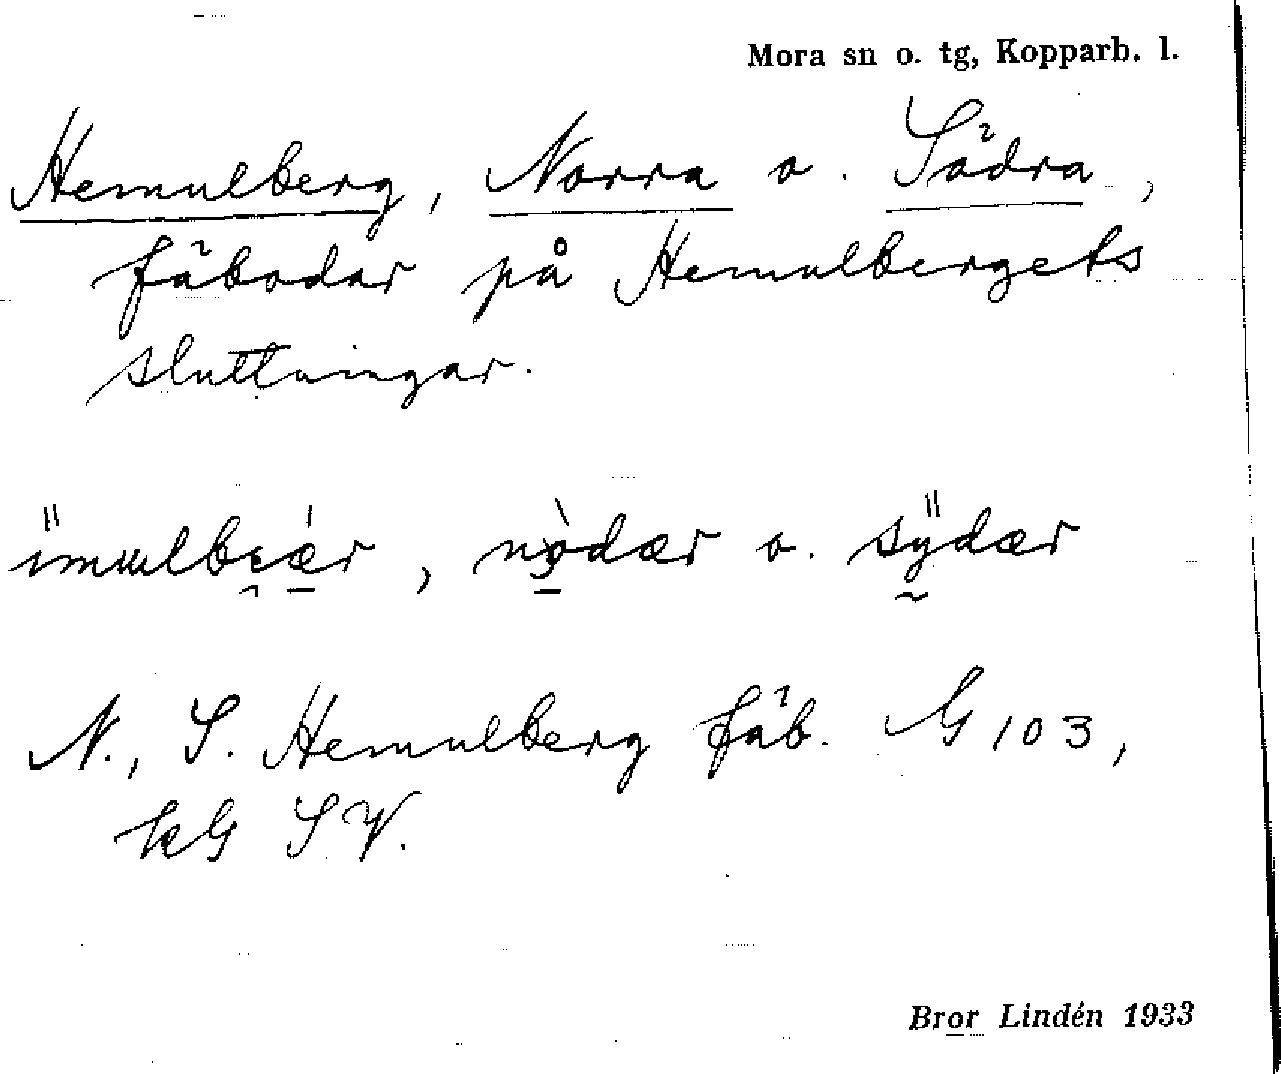 Mora sn o. tg, Kopparb. l.
Hemulberg, Norra o. Södra,
fäbodar på Hemulbergets
sluttningar.
o.
N., S. Hemulberg fäb. G 103,
kG SV.
Bror Lindén 1933